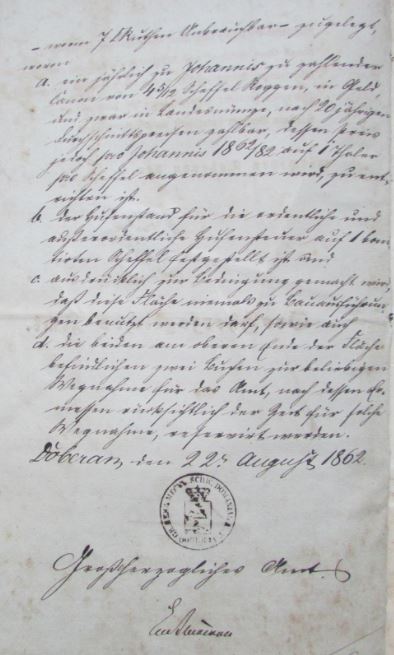 – wovon 7 □Ruthen Unbrauchbar – zugelegt,
wovon
a. ein jährlich zu Johannis zu zahlender
Canon von 4 Scheffel Roggen, in Geld
und zwar in Landesmünze, nach 20jährigen
Durchschnittspreisen zahlbar, dessen Preis
jedoch pro Johannis 1862/82 auf 1 Thaler
pro Scheffel angenommen wird, zu ent-
richten ist.
b. der Hufenstand für die ordentliche und
außerordentliche Hufensteuer auf 1 boni-
tirten Scheffel festgestellt ist und
c. ausdrücklich zur Bedingung gemacht wird,
daß diese Fläche niemals zu Bauausführun-
gen benutzt werden darf, sowie auch
d. die beiden am oberen Ende der Fläche
befindlichen zwei Buchen zur beliebigen
Wegnahme für das Amt, nach dessen Er-
messen rücksichtlich der Zeit für solche
Wegnahme, reservirt werden.
Doberan, den 22n August 1862.
DOBERAN
Großherzogliches Amt.